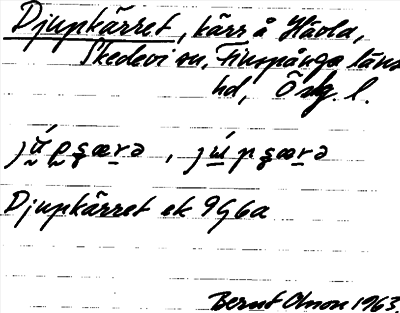 Djupkärret, kärr å Håvla,
Skedevi sn, Finspånga läns
hd, Ög. l.
Djupkärret ek 9G6a
Bernt Olsson 1963.